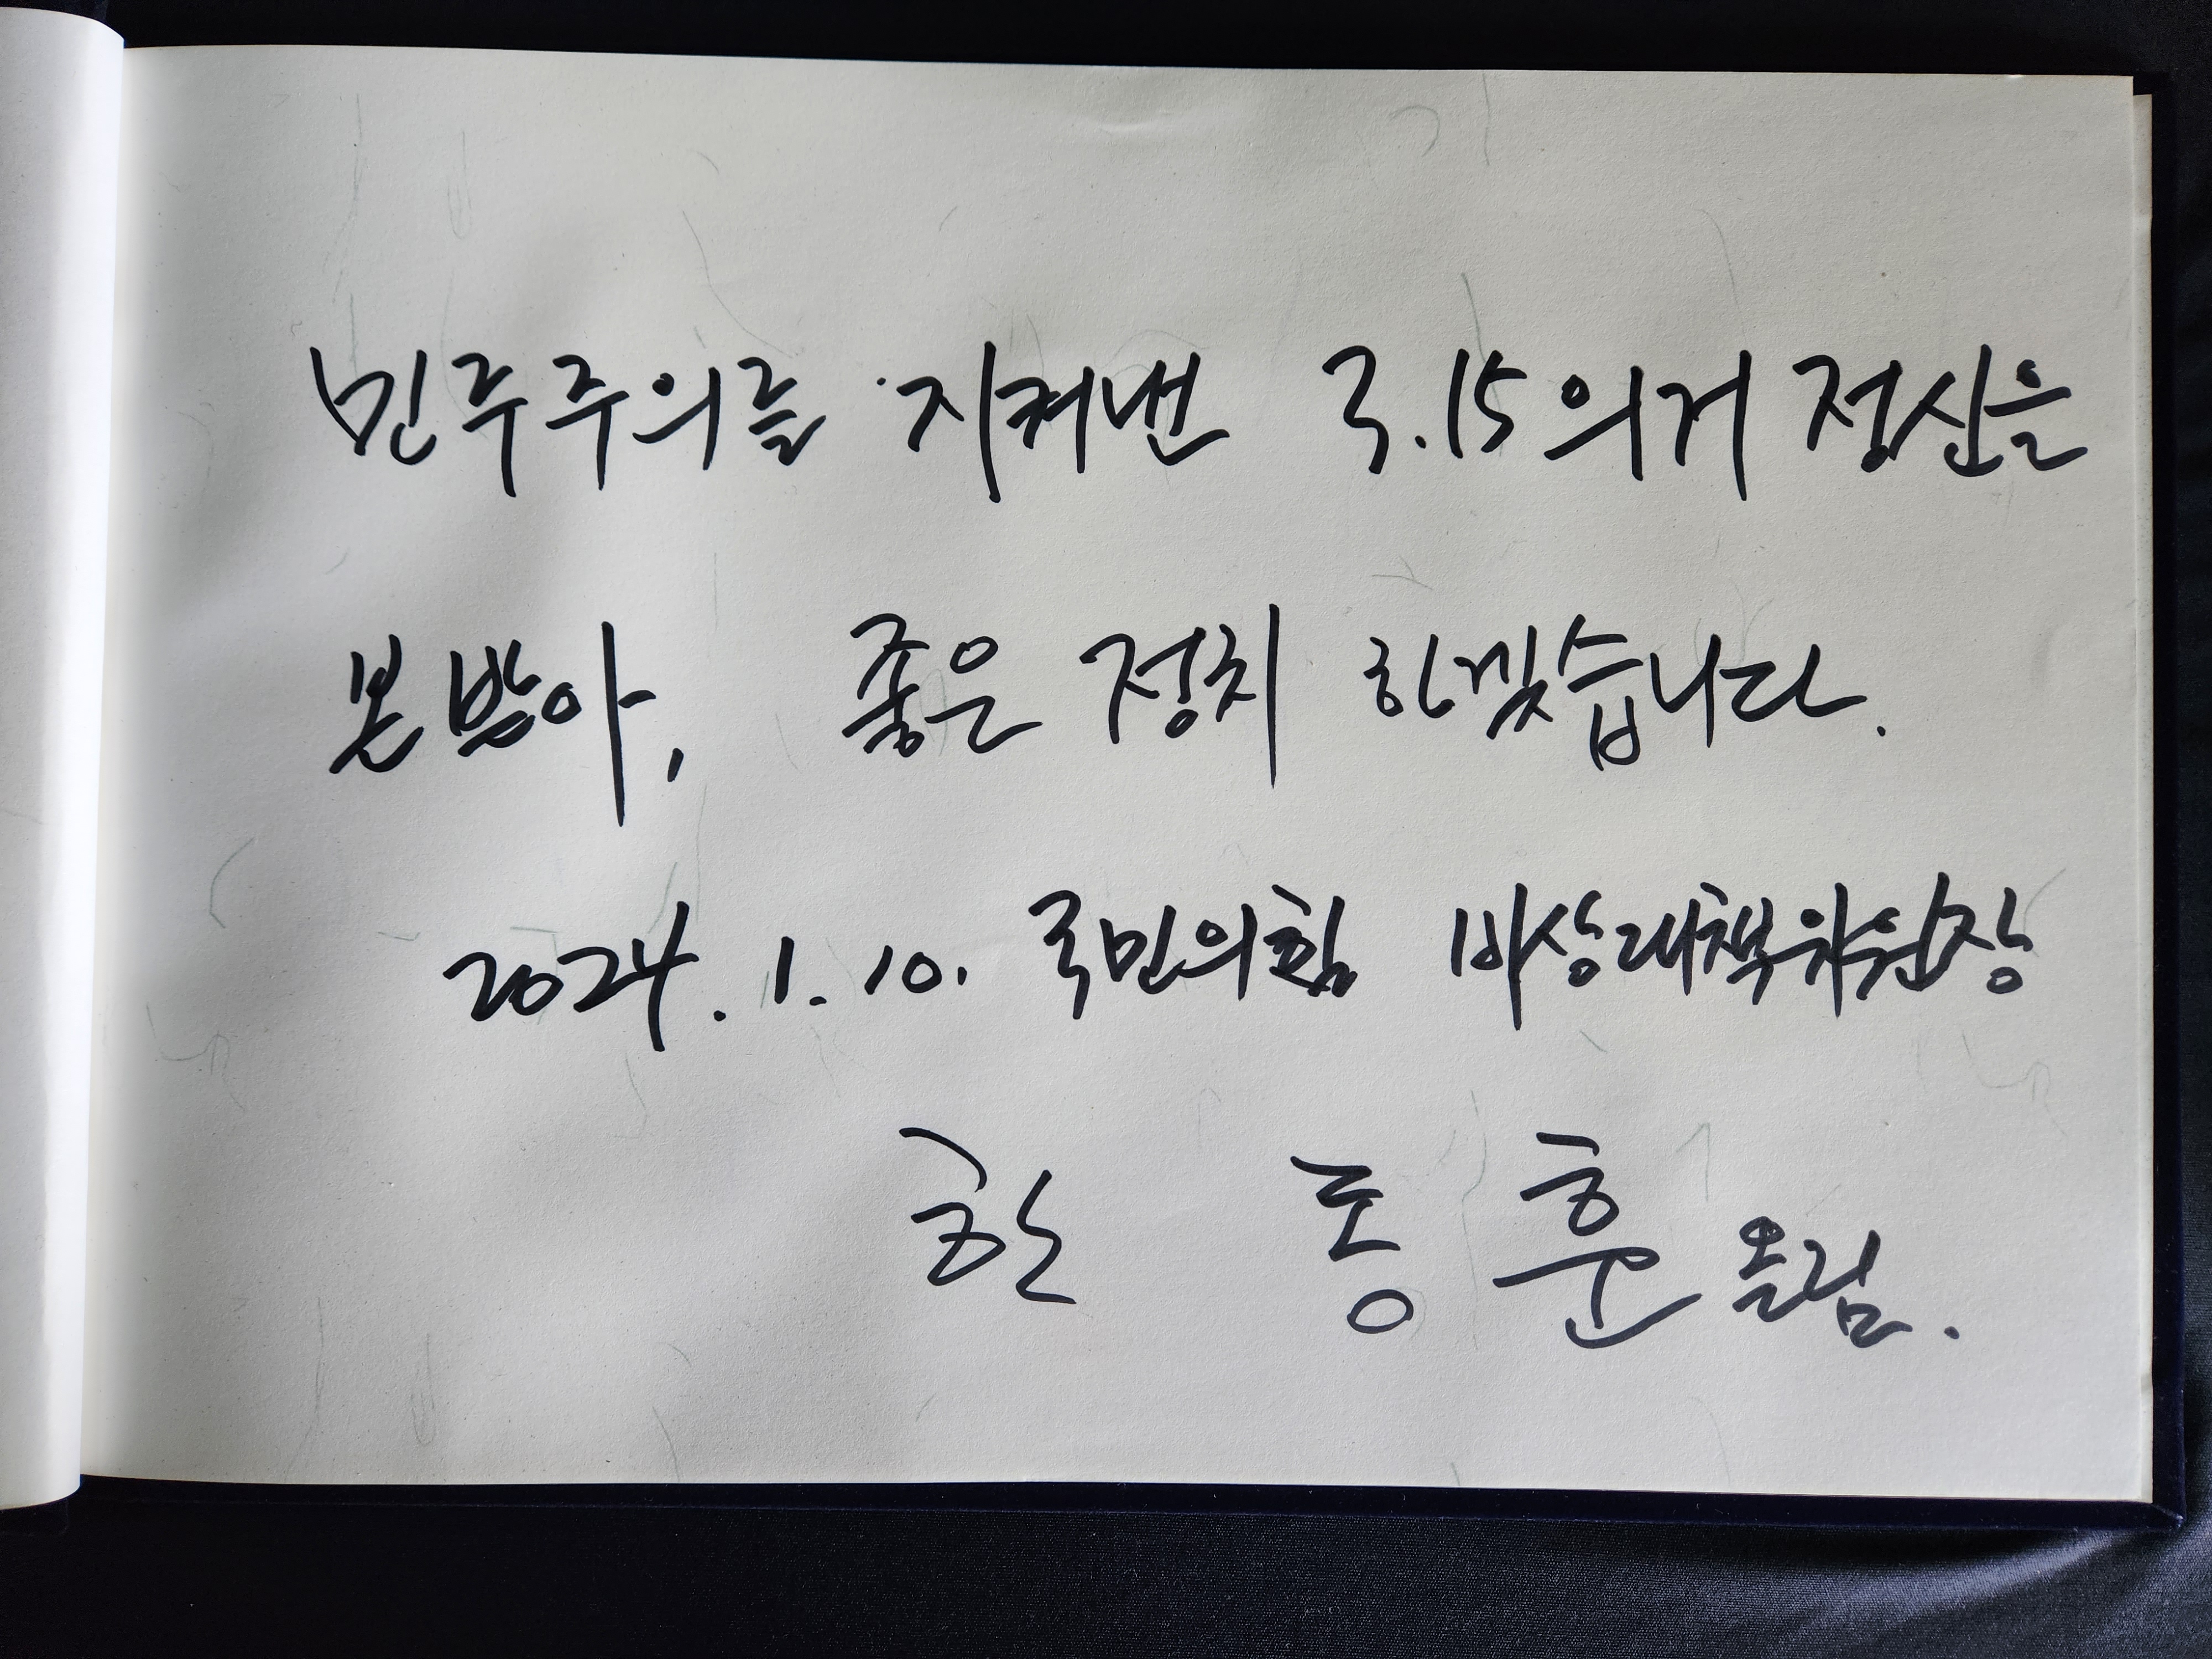 민주주의를 지켜낸 3.15의거 정신을
본받아, 좋은 정치 하겠습니다.
2024. 1. 10. 국민의힘 비상대책위원장
한 동 훈 올림.